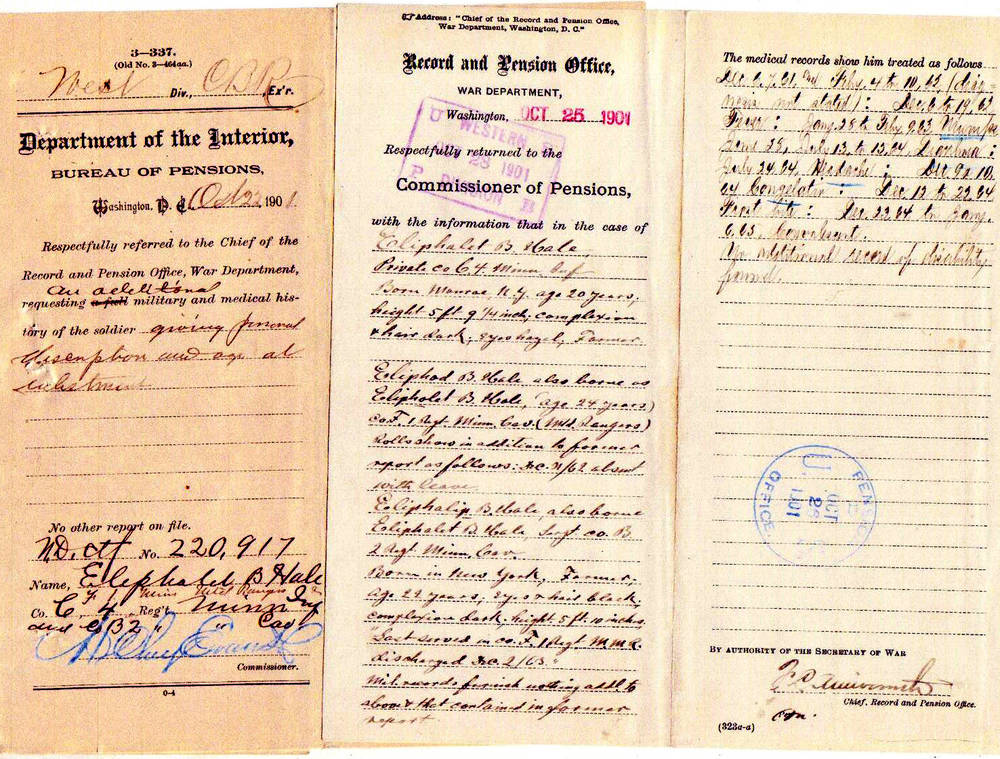 3—337.
(Old No. 3—464aa.)
West Div., C.B.R. Ex'r.
Department of the Interior,
BUREAU OF PENSIONS,
Washington, D. C., Oct 22 1901.
Respectfully referred to the Chief of the
Record and Pension Office, War Department,
an additional
requesting a full military and medical his-
tory of the soldier giving personal
description and age at
enlistment
No other report on file.
No. 220,917
Name, Eliphalet B Hale
F 1 Minn Mtd Rangers
Co. C, 4, Reg't Minn Inf
and B 2 " " Cav
Commissioner.
0-4
Address: "Chief of the Record and Pension Office,
War Department, Washington, D. C."
Record and Pension Office,
WAR DEPARTMENT,
Washington, OCT 25 1901
U WESTERN
1901
P DIVISION
Respectfully returned to the
Commissioner of Pensions,
with the information that in the case of
Eliphalet B. Hale
Private co C, 4 Minn Inf
Born Monroe, N.Y. age 20 years;
height 5 ft 9 1/4 inch; complexion
& hair dark; Eyes hazel; Farmer
Eliphod B. Hale also borne as
Elipholet B. Hale, (age 24 years)
co F, 1 Regt. Minn. Cav. (Mtd. Rangers)
Rolls show in addition to former
report as follows: Dc. 31/62 absent
with leave
Eliphalip B. Hale, also borne
Eliphalet B. Hale Sergt co. B
2 Regt. Minn. Cav.
Born in New York, Farmer,
age 22 years; Eyes & hair black;
complexion dark, height 5 ft. 10 inches.
Last served in co. F. 1 Regt. M.M.R.
discharged Dc. 2/63."
Mil. records furnish nothing addl to
above & that contained in former
report
The medical records show him treated as follows
Dec 6, 7, 31, Feby. 4 to 10, 63 (diag-
nosis not stated): Dec 6 to 19, 63
Fever: Jany. 28 to Feby 9, 63, Mumps
June 23, July 13 to 15, 64, Diarrhoea:
July 24, 64, Headache: Dec 9 & 10,
64 Congelatio: Dec. 12 to 22, 64
Frost bite: Dec. 22, 64 to Jany.
6, 65, Convalescent.
No additional record of disability
found.
PENSION
U. OCT 26 1901
OFFICE
BY AUTHORITY OF THE SECRETARY OF WAR
F.C. Ainsworth
Chief, Record and Pension Office.
(323a-a)